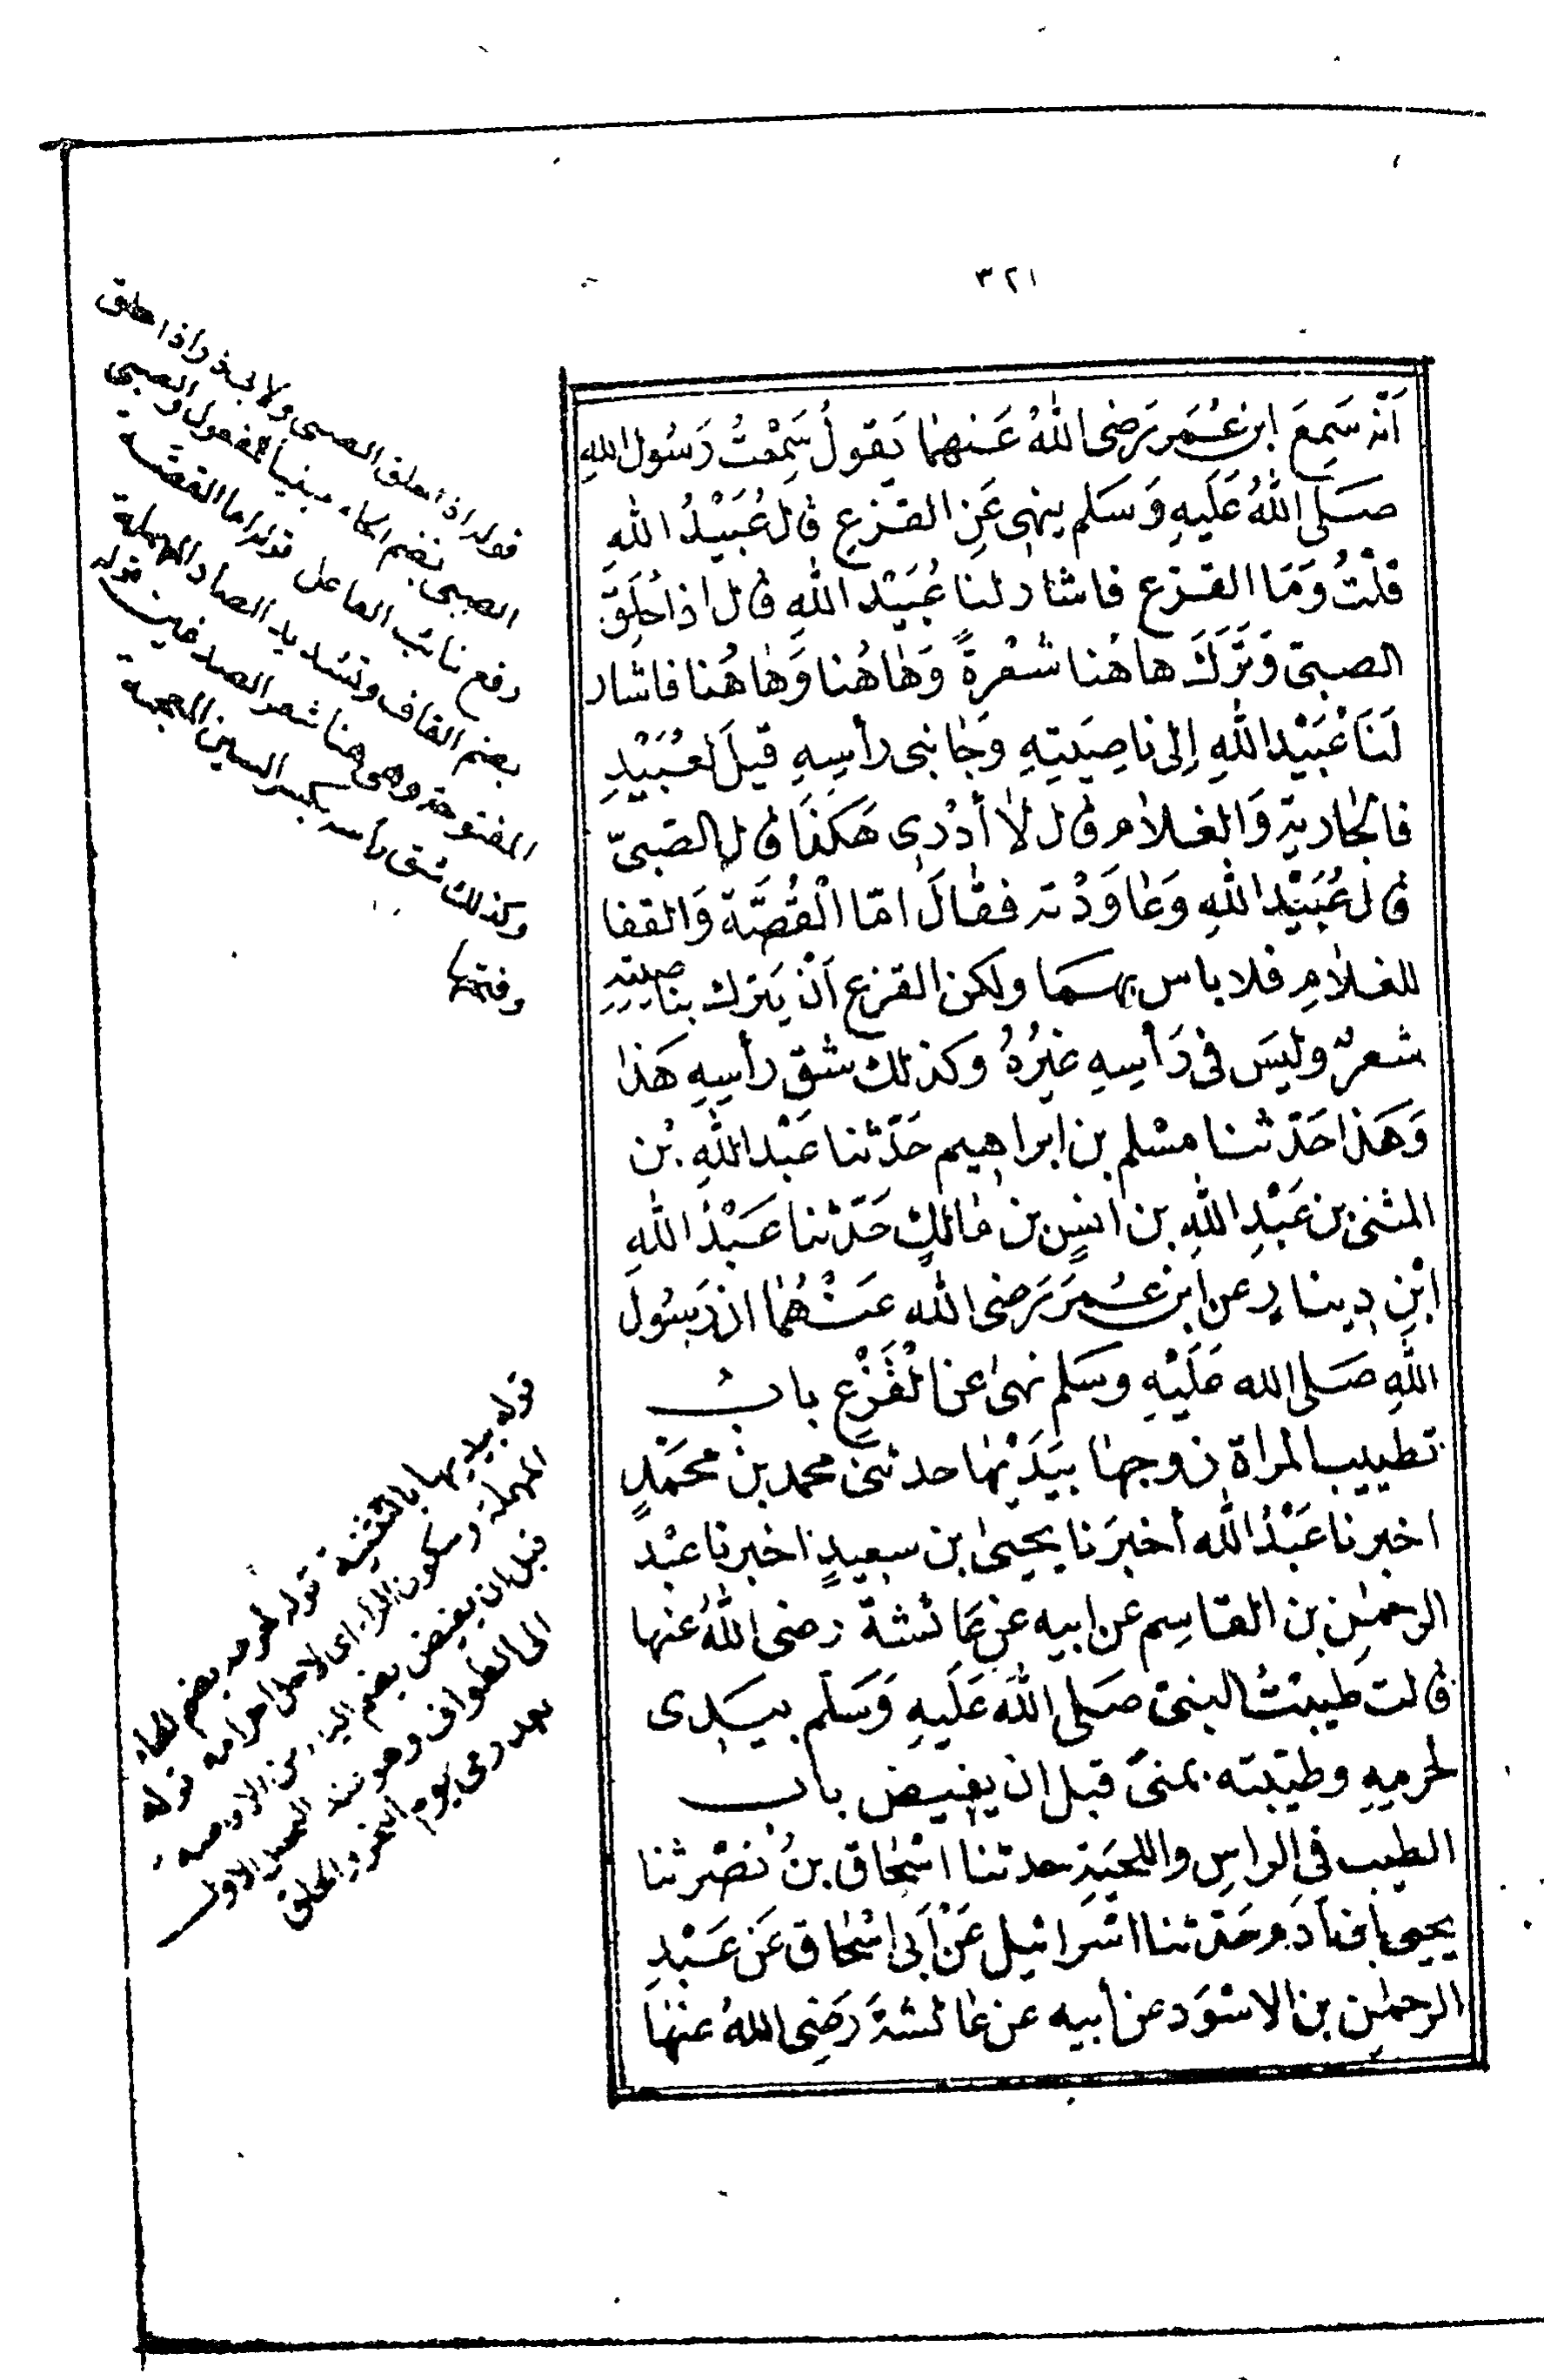 ٣٢١
اَنّه سَمِعَ ابن عُمَر رَضى اللهُ عَنهمَا يَقولُ سَمِعْتُ رَسُول اللهِ
صَلى اللهُ عَلَيهِ وَسَلم ينهى عَنِ القزع قال عُبَيْدُ اللهِ
قلْتُ وَمَا القزع فاشار لنا عُبَيْد اللهِ قال اذا حُلِقَ
الصبىّ وَتَرَكَ هاهُنا شعْرةً وَهاهُنا وَهاهُنا فاشار
لَنَا عُبَيْد اللهِ اِلى ناصِيَتِهِ وَجَانبى رأسِهِ قيلَ لعُبَيْدِ اللهِ
فالجَارية وَالغلام قال لاَ أدْرى هَكذَا قال الصَبىّ
قال عُبَيْد اللهِ وَعَاوَدْته فقالَ امّا الْقُصَّة وَالقفا
للغلامِ فلا باس بهمَا ولكن القزع اَنْ يَترك بناصيته
شعرٌ وليسَ فى رَأسِهِ غيْرُهُ وكذلك شق رأسِهِ هَذا
وَهَذا حَدّثنا مسْلم بن ابراهيم حَدّثنا عَبْد اللهِ بْن
المثنى بن عَبْدِ اللهِ بن انسٍ بن مَالكٍ حَدّثنا عَبْدُ اللهِ
ابْنِ دِينارٍ عن ابن عُمرَ رَضى الله عَنْهُمَا ان رَسُولَ
اللهِ صَلى الله عَلَيْهِ وسَلم نهى عن الْقَزْعِ بابُ
تطييب المراة زوجهَا بيَدَيْهَا حدثنى محمد بنُ محَمّدٍ
اخبرنا عَبْدُ الله أخبَرَنا يحيىٰ بن سعيدٍ اخبرنا عبْد
الرحمٰن بن القاسِم عن ابيه عن عَائشة رضى اللهُ عنها
قالت طيبْتُ النبىّ صَلى اللهَ عَلَيهِ وَسَلم بيَدِى
لحرمِهِ وطيّبته بمنىً قبل ان يفيض باب
الطيب فى الراسِ واللحيَةِ حدثنا اسْحاق بنُ نصْر ثنا
يحيى بن آدَم حَدّثنا اسْرائيل عَنْ أَبى اسْحَاق عَن عَبْدِ
الرحمٰن بن الاسْوَد عن أبيه عن عائشة رَضِى اللهُ عنهَا
قوله اذا حلق الصبى ولابى ذر اذا حلق
الصبى بضم الحاء مبنياً للمفعول والصبى
رفع نائب الفاعل قوله اما القصّة
بضم القاف وتشديد الصاد المهملة
المفتوحة وهى هنا شعر الصدغين قوله
وكذلك شق رأسه بكسر الشين المعجمة
وفتحها
قوله بيديها بالتثنية قوله لحرمه بضم الحاء
المهملة وسكون الراء اى لاجل احرامه قوله
قبل ان يفيض بضم الياء من الافاضة
الى الطواف وهو عند التحلل الاول
بعد رمى يوم النحر والحلق